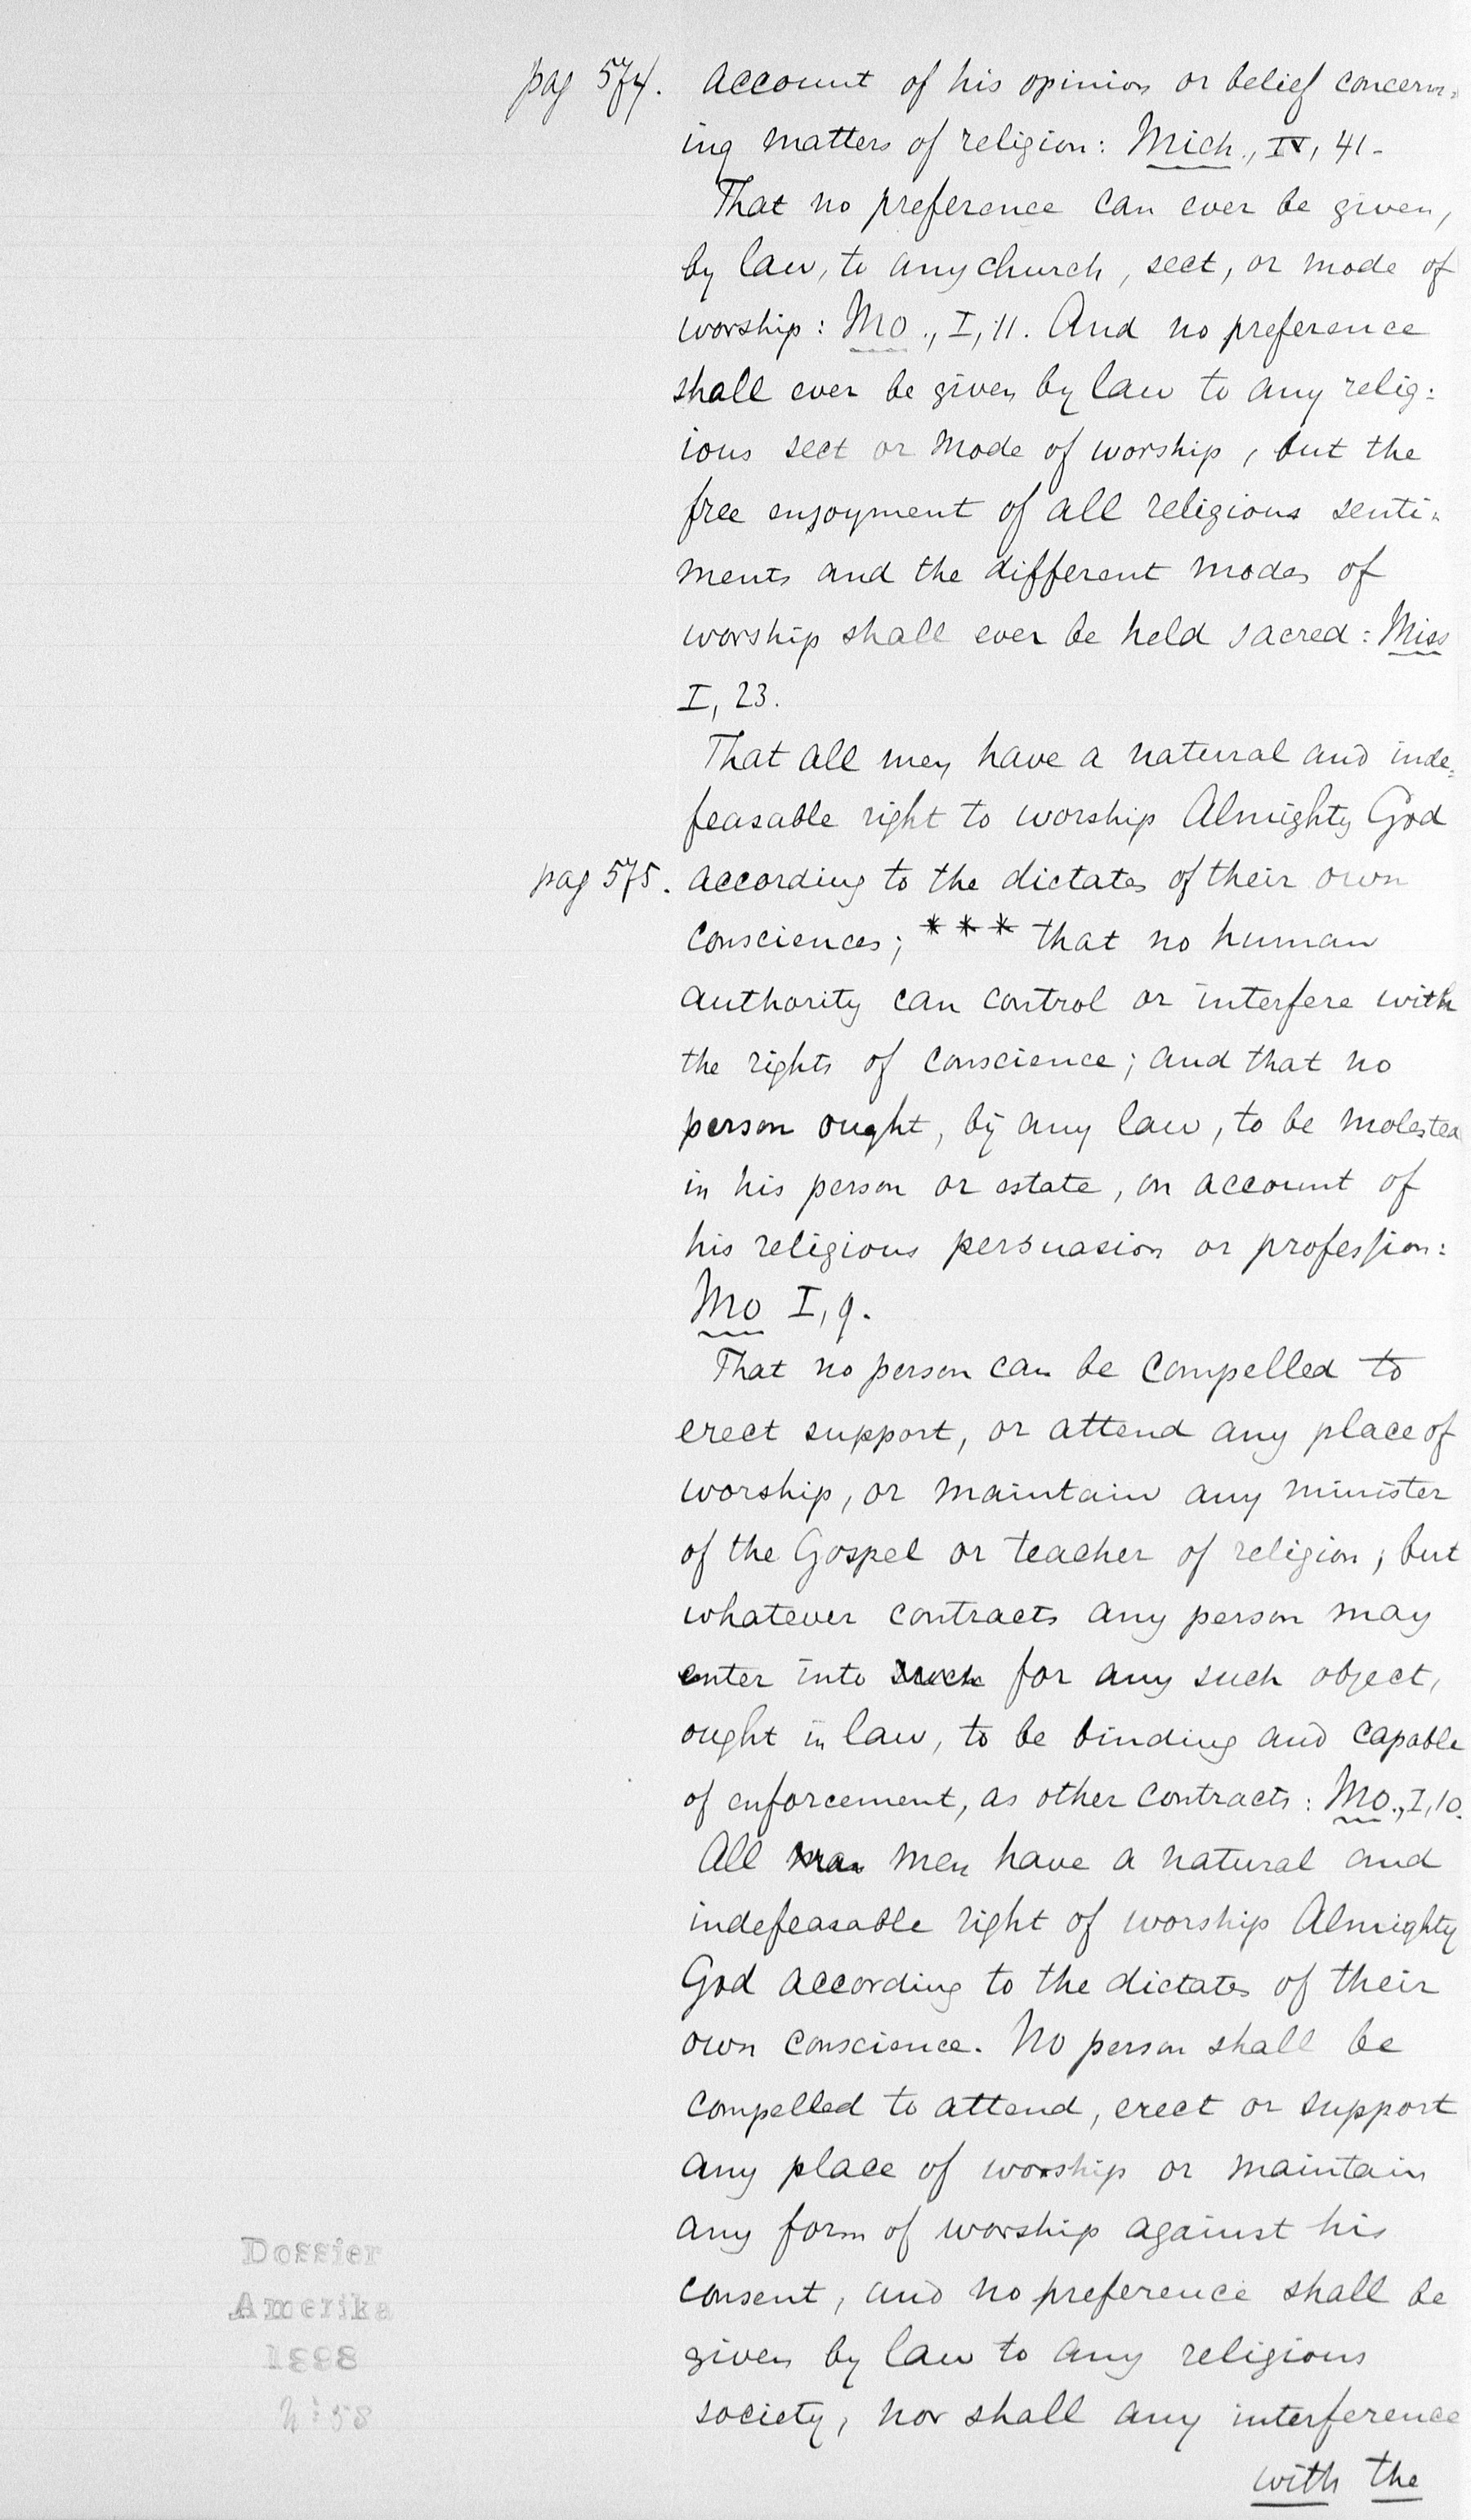 pag 574. account of his opinion or belief concern-
ing matters of religion: Mich., IV, 41-
That no preference can ever be given,
by law, to any church, sect, or mode of
worship: Mo., I, 11. And no preference
shall ever be given by law to any relig:
ious sect or mode of worship, but the
free enjoyment of all religious senti-
ments and the different modes of
worship shall ever be held sacred: Miss
I, 23.
That all men have a natural and inde-
feasable right to worship Almighty God
pag 575. according to the dictates of their own
consciences; *** that no human
authority can control or interfere with
the rights of conscience; and that no
person ought, by any law, to be molested
in his person or estate, on account of
his religious persuasion or profession:
Mo I, 9.
That no person can be compelled to
erect support, or attend any place of
worship, or maintain any minister
of the Gospel or teacher of religion; but
whatever contracts any person may
enter into such for any such object,
ought in law, to be binding and capable
of enforcement, as other contracts: Mo., I, 10.
All men have a natural and
indefeasable right of worship Almighty
God according to the dictates of their
own conscience. No person shall be
compelled to attend, erect or support
any place of worship or maintain
any form of worship against his
consent, and no preference shall be
given by law to any religious
society, nor shall any interference
with the
Dossier
Amerika
1898
N: 58